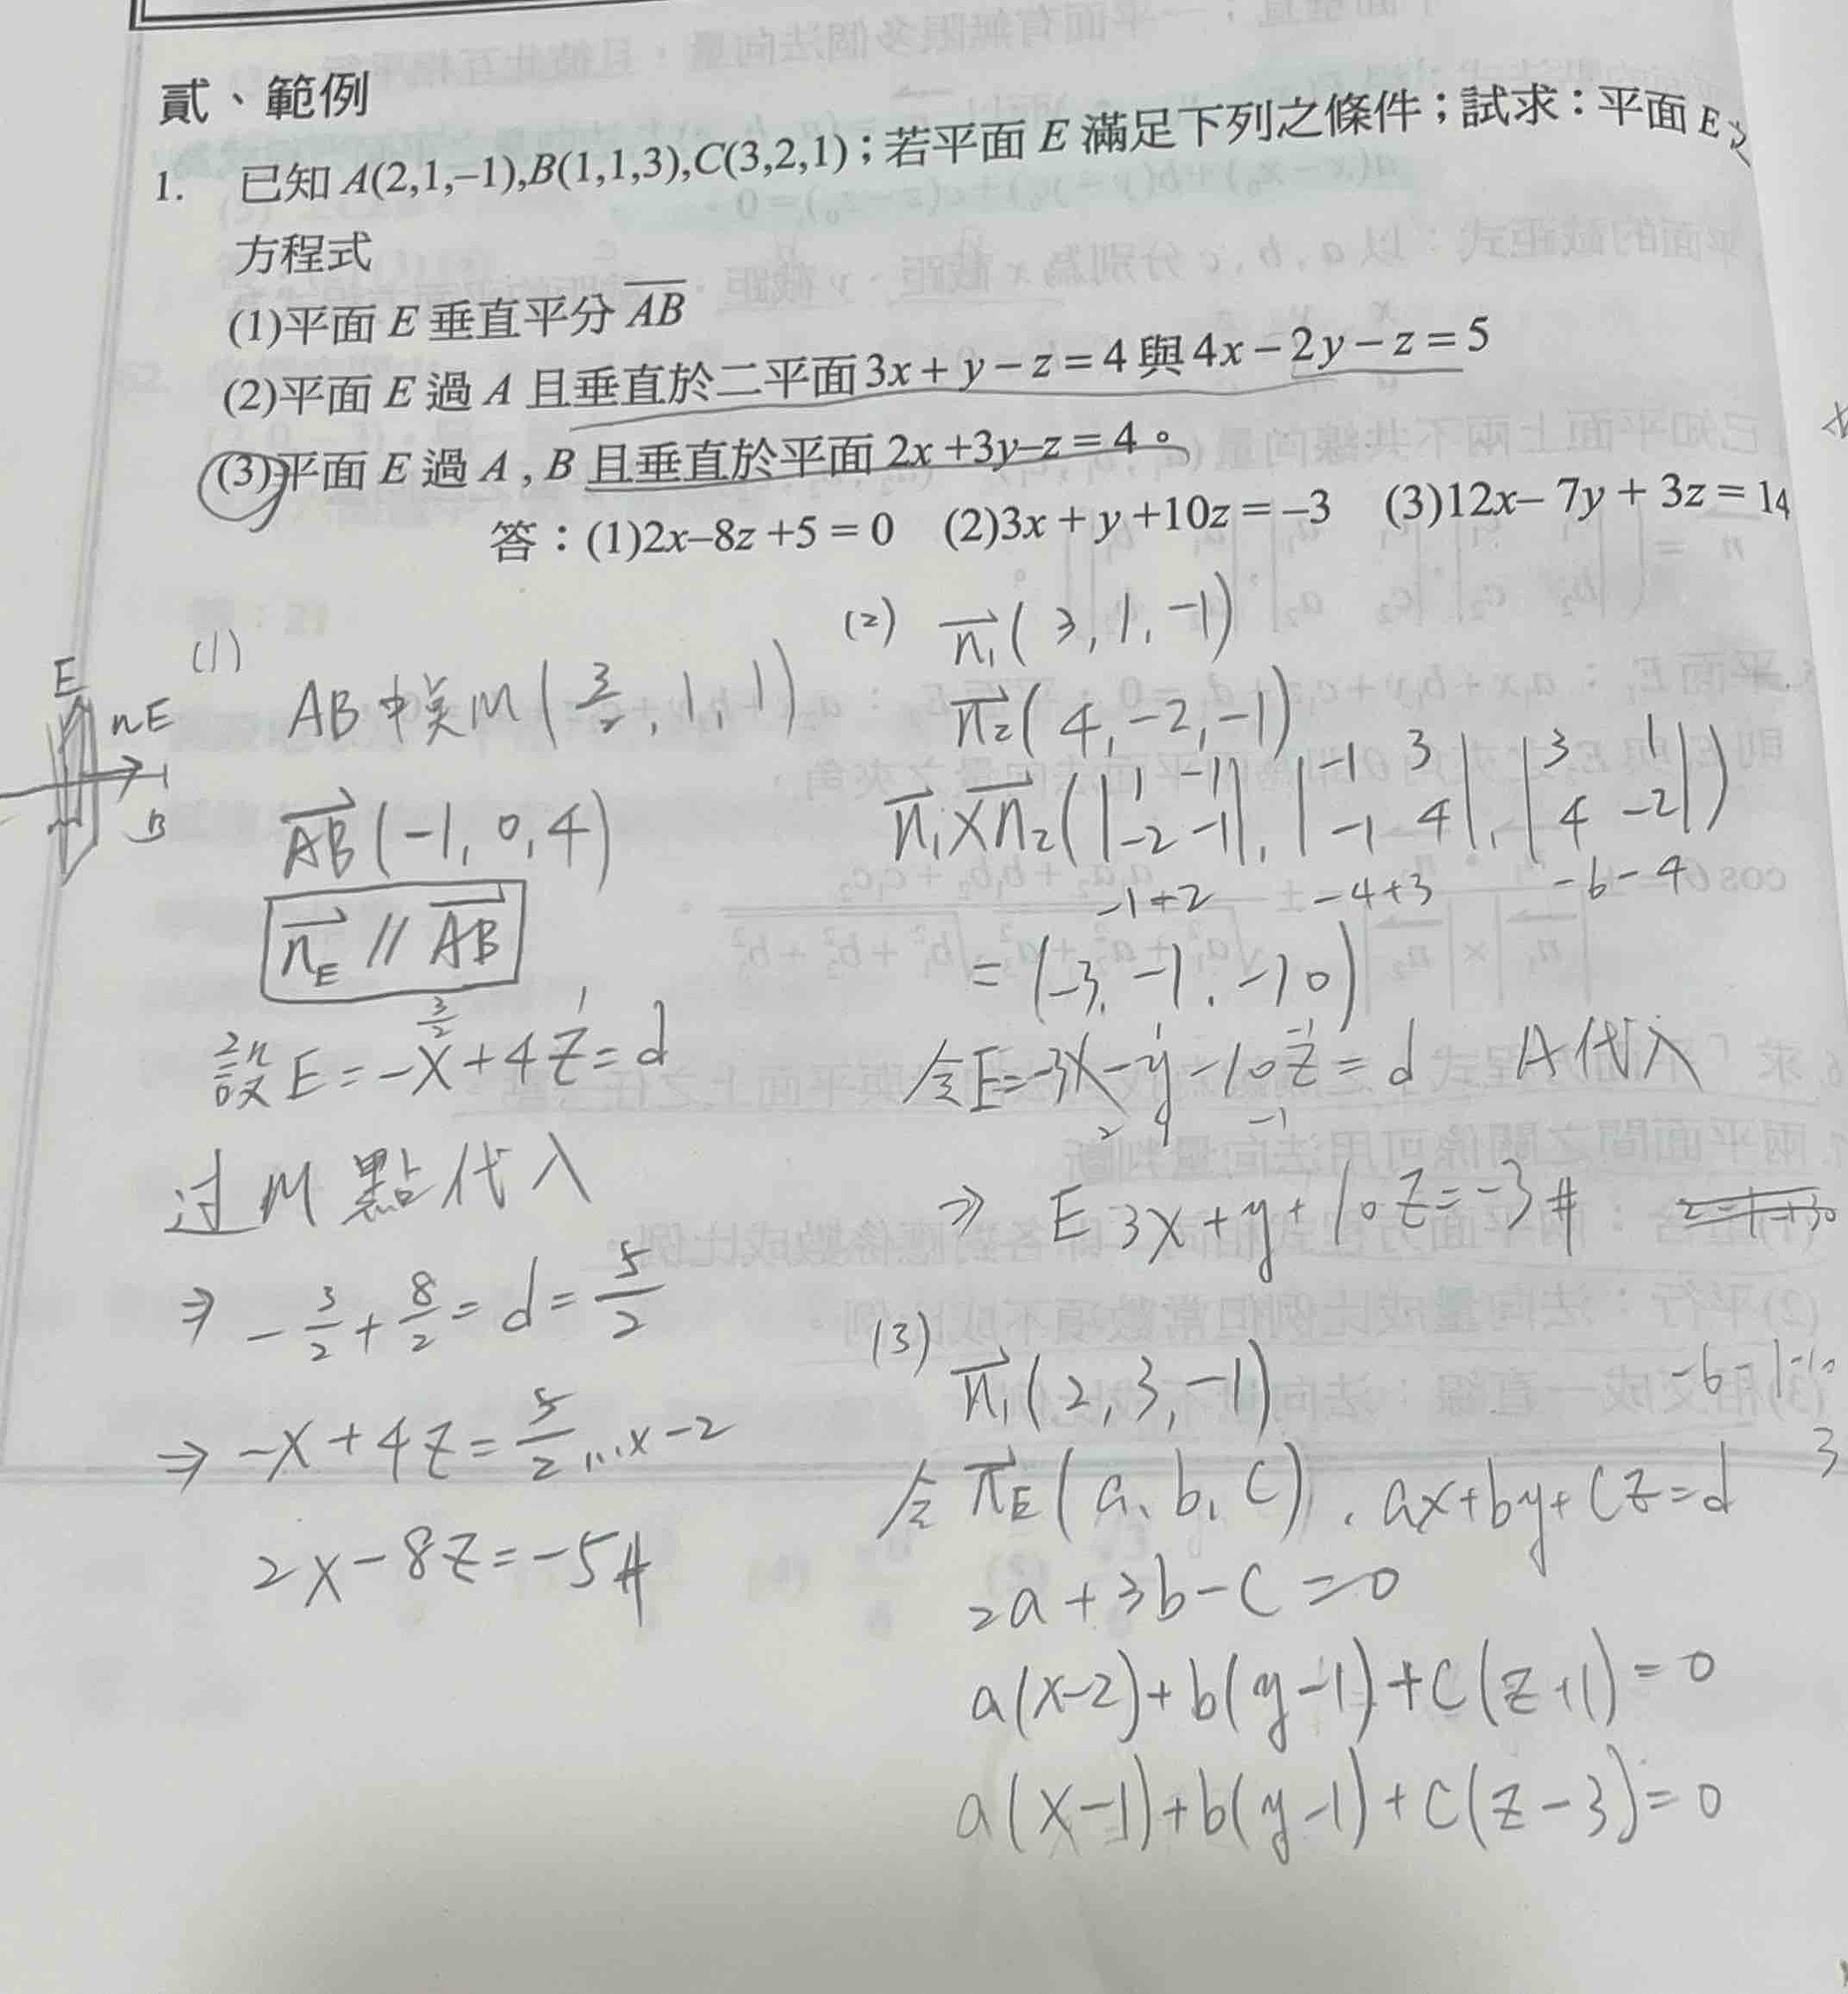 貳、範例
1. 已知 A(2,1,–1),B(1,1,3),C(3,2,1);若平面 E 滿足下列之條件;試求:平面 E 之
方程式
(1)平面 E 垂直平分 \overline{AB}
(2)平面 E 過 A 且垂直於二平面 3x + y – z = 4 與 4x – 2y – z = 5
(3)平面 E 過 A , B 且垂直於平面 2x +3y–z = 4。
答:(1)2x–8z +5 = 0 (2)3x + y +10z = –3 (3)12x– 7y + 3z = 14
(1)
E
nE
B
AB中点M(3/2, 1, 1)
\vec{AB}(-1, 0, 4)
\vec{n_E} // \vec{AB}
3/2 1
設E=-x+4z=d
过M點代入
⇒ -3/2+8/2=d=5/2
⇒ -x+4z=5/2...x-2
2x-8z=-5#
(2) \vec{n_1}(3, 1, -1)
\vec{n_2}(4, -2, -1)
\vec{n_1}×\vec{n_2}(|1 -1|, |-1 3|, |3 1|)
|-2 -1| |-1 4| |4 -2|
-1+2 -4+3 -6-4
=(-3, -1, -10)
令E=-3x-y-10z=d A代入
2 -1
⇒ E 3x+y+10z=-3#
(3) \vec{n_1}(2, 3, -1)
令\vec{n_E}(a, b, c), ax+by+cz=d
2a+3b-c=0
a(x-2)+b(y-1)+c(z+1)=0
a(x-1)+b(y-1)+c(z-3)=0
-6-1-10
3